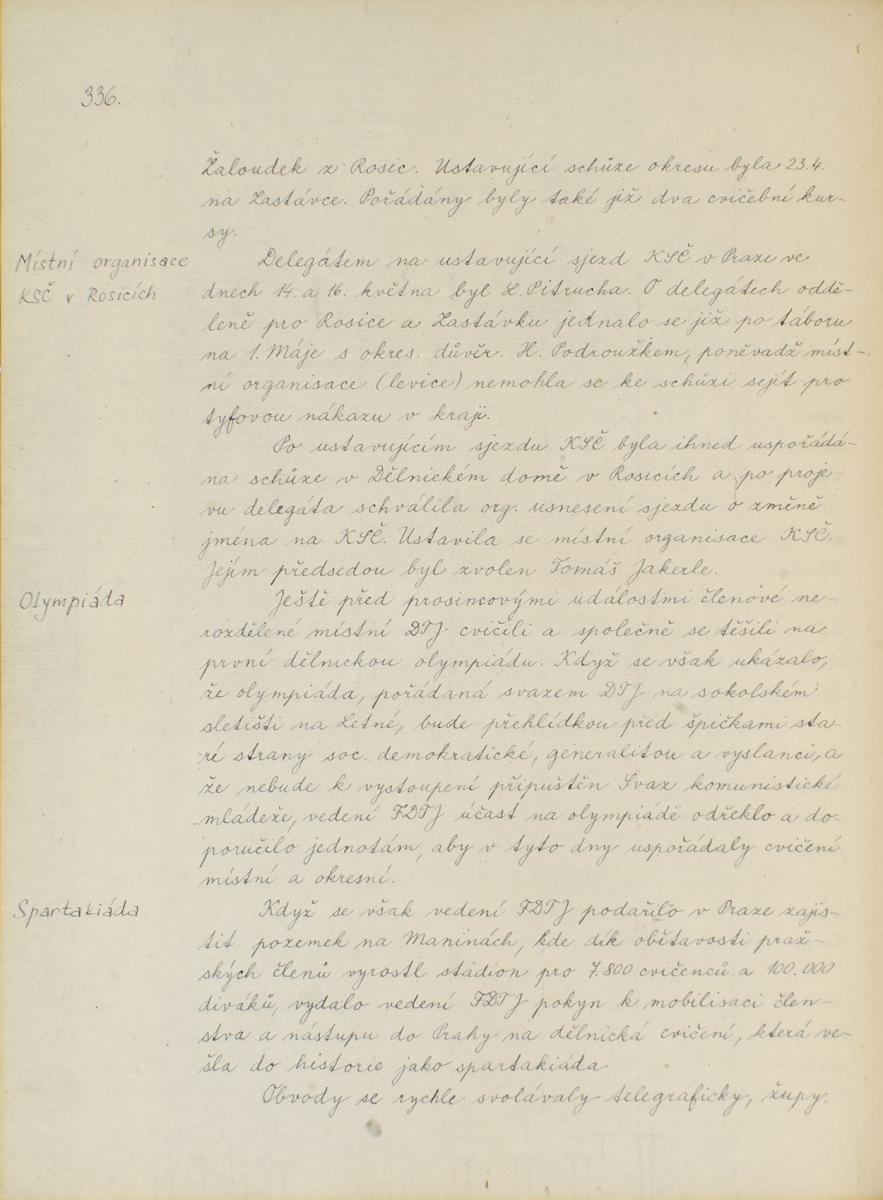 336.
Žaloudek z Rosic. Ustavující schůze okresu byla 23.4.
na Zastávce. Pořádány byly také již dva cvičební kur-
sy.
Místní organisace
KSČ v Rosicích
Delegátem na ustavující sjezd KSČ v Praze ve
dnech 14. a 16. května byl H. Pitrucha. O delegátech oddě-
leně pro Rosice a Zastávku jednalo se již po táboru
na 1. Máje s okres. důvěr. H. Podroužkem, poněvadž míst-
ní organisace (levice) nemohla se ke schůzi sejít pro
tyfovou nákazu v kraji.
Po ustavujícím sjezdu KSČ byla ihned uspořádá-
na schůze v Dělnickém domě v Rosicích a po proje-
vu delegáta schválila org. usnesení sjezdu o změně
jména na KSČ. Ustavila se místní organisace KSČ.
Jejím předsedou byl zvolen Tomáš Jakerle.
Olympiáda
Ještě před prosincovými událostmi členové ne-
rozdělené místní DTJ cvičili a společně se těšili na
první dělnickou olympiádu. Když se však ukázalo,
že olympiáda, pořádaná svazem DTJ na sokolském
sletišti na Letné, bude přehlídkou před špičkami sta-
ré strany soc. demokratické, generalitou a vyslanci, a
že nebude k vystoupení připuštěn Svaz komunistické
mládeže, vedení FDTJ účast na olympiádě odřeklo a do-
poručilo jednotám, aby v tyto dny uspořádaly cvičení
místní a okresní.
Spartakiáda
Když se však vedení FDTJ podařilo v Praze zajis-
tit pozemek na Maninách, kde dík obětavosti praž-
ských členů vyrostl stádion pro 7.800 cvičenců a 100.000
diváků, vydalo vedení FDTJ pokyn k mobilisaci člen-
stva a nástupu do Prahy na dělnická cvičení, která ve-
šla do historie jako spartakiáda.
Obvody se rychle svolávaly telegraficky, župy